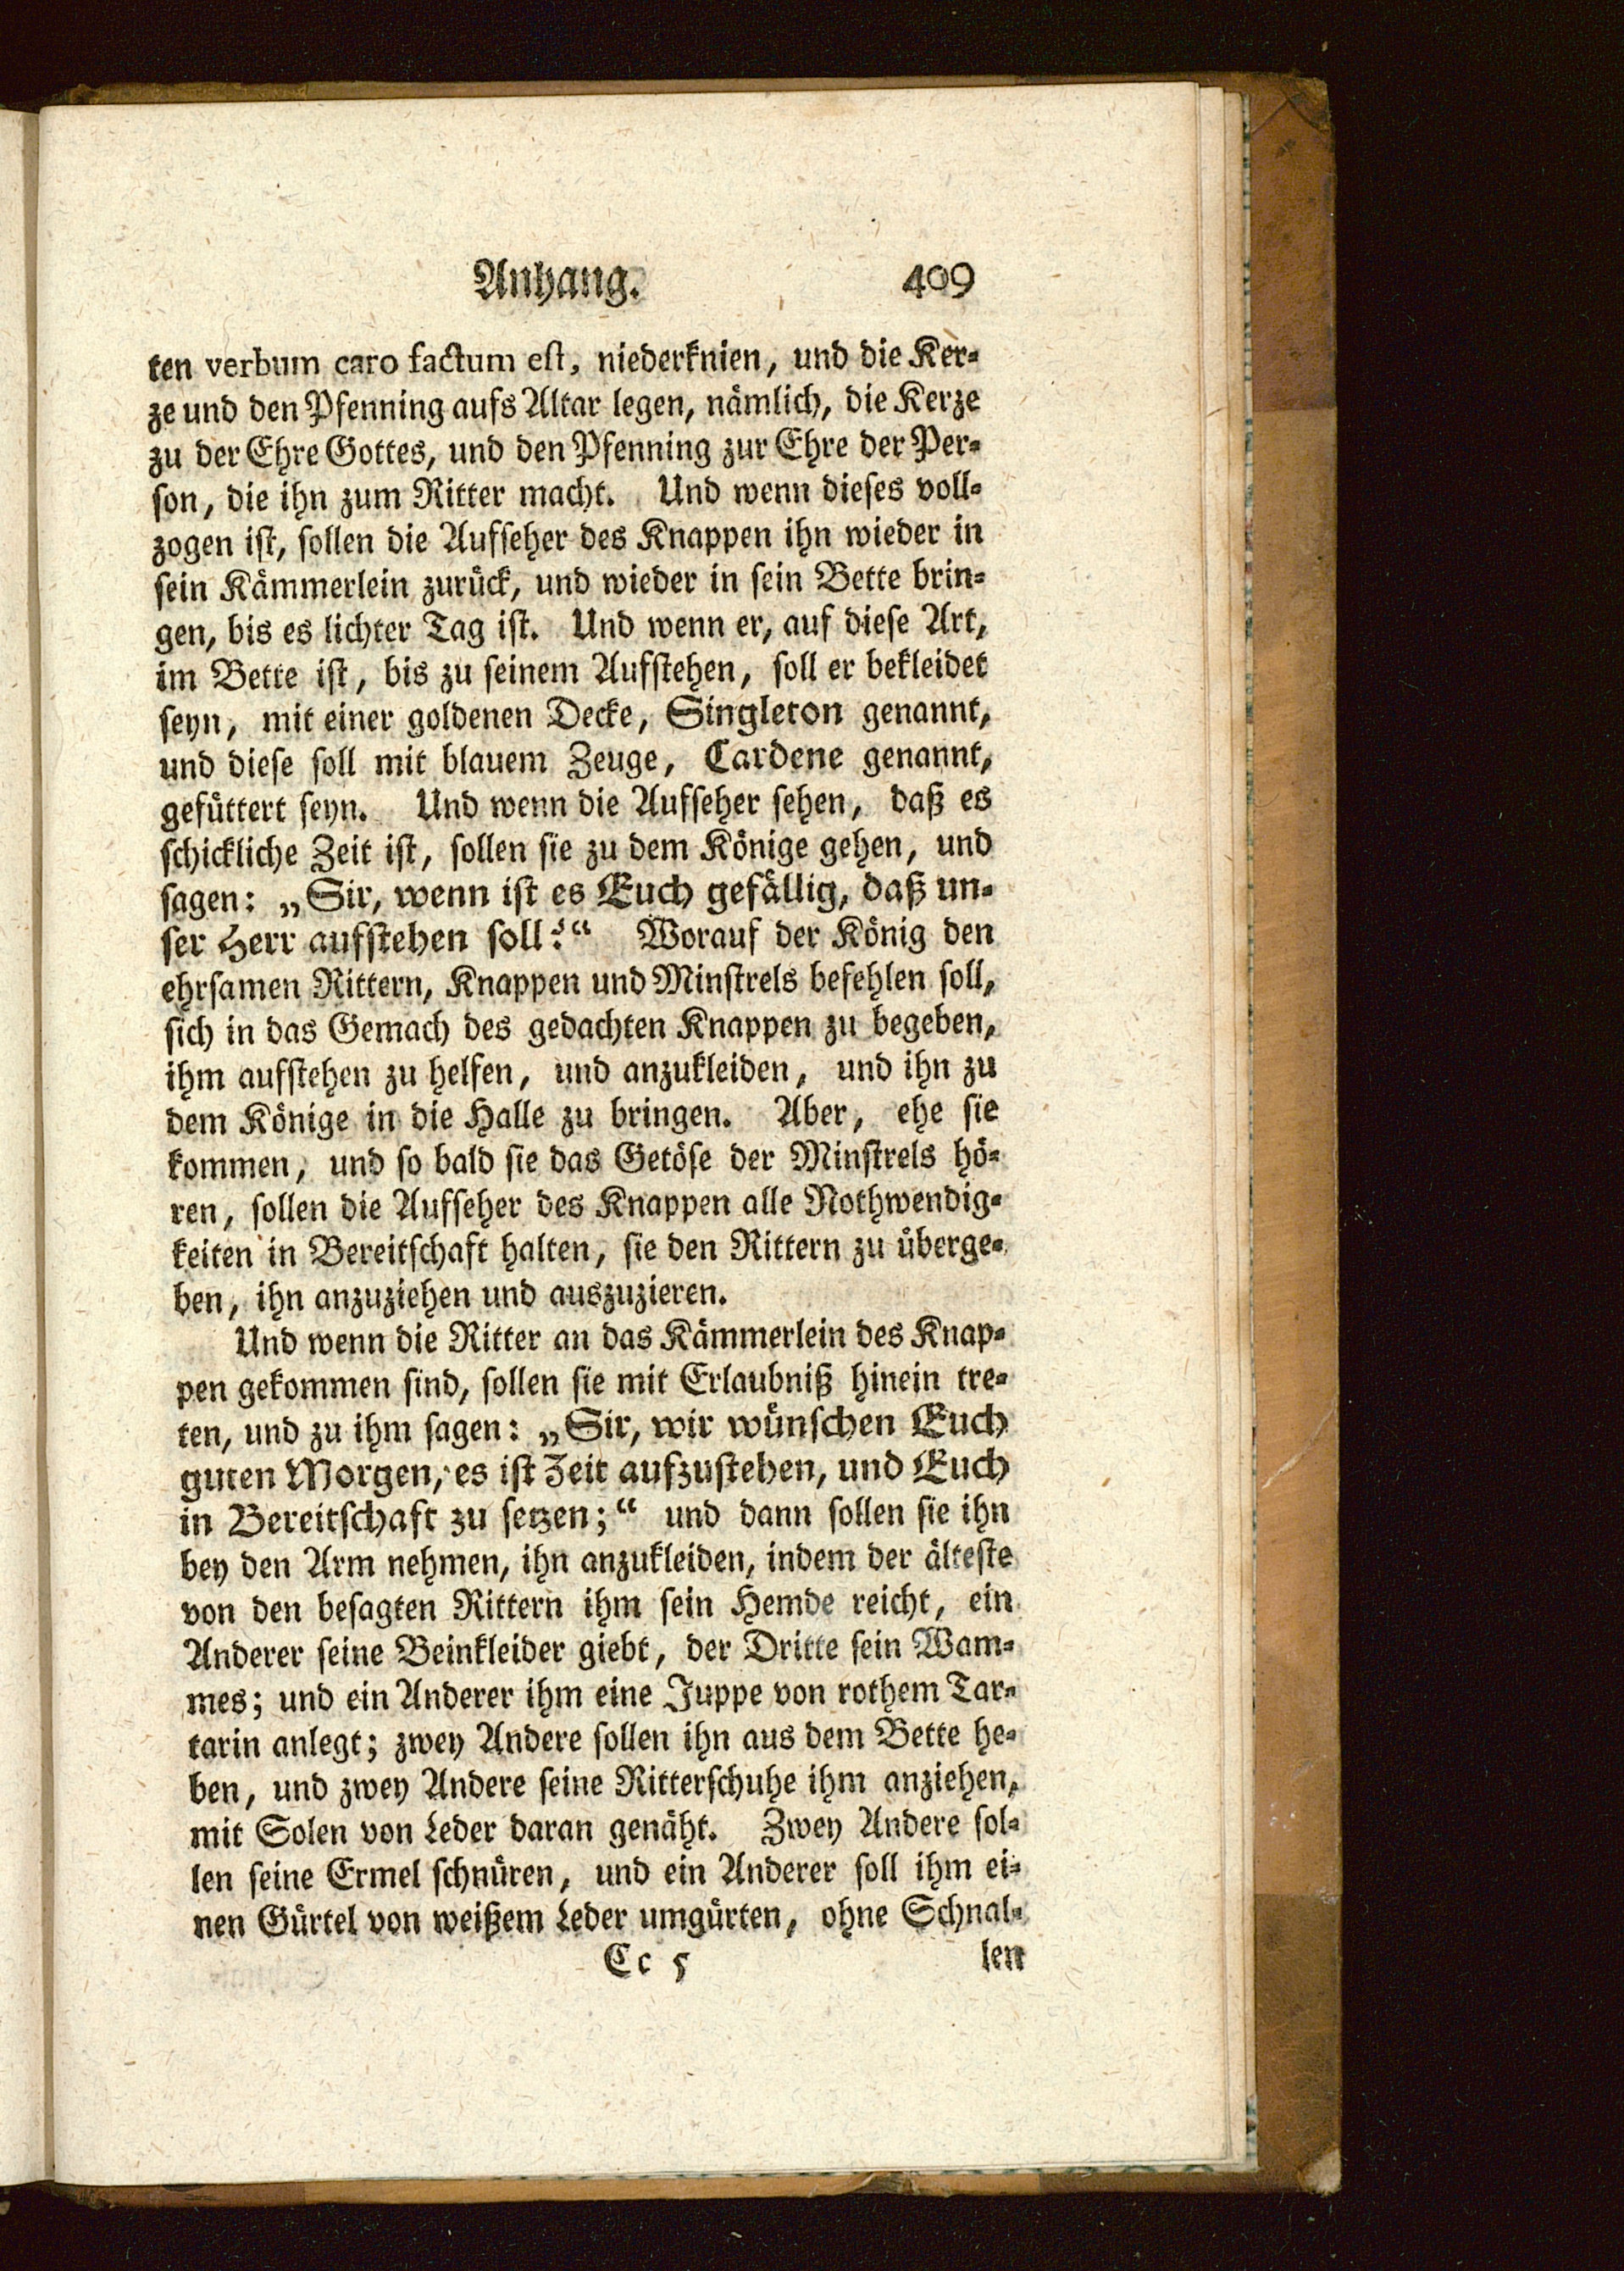 Anhang. 409
ten verbum caro factum est, niederknien, und die Ker-
ze und den Pfenning aufs Altar legen, nämlich, die Kerze
zu der Ehre Gottes, und den Pfenning zur Ehre der Per-
son, die ihn zum Ritter macht. Und wenn dieses voll-
zogen ist, sollen die Aufseher des Knappen ihn wieder in
sein Kämmerlein zurück, und wieder in sein Bette brin-
gen, bis es lichter Tag ist. Und wenn er, auf diese Art,
im Bette ist, bis zu seinem Aufstehen, soll er bekleidet
seyn, mit einer goldenen Decke, Singleton genannt,
und diese soll mit blauem Zeuge, Cardene genannt,
gefüttert seyn. Und wenn die Aufseher sehen, daß es
schickliche Zeit ist, sollen sie zu dem Könige gehen, und
sagen: „Sir, wenn ist es Euch gefällig, daß un-
ser Herr aufstehen soll?“ Worauf der König den
ehrsamen Rittern, Knappen und Minstrels befehlen soll,
sich in das Gemach des gedachten Knappen zu begeben,
ihm aufstehen zu helfen, und anzukleiden, und ihn zu
dem Könige in die Halle zu bringen. Aber, ehe sie
kommen, und so bald sie das Getöse der Minstrels hö-
ren, sollen die Aufseher des Knappen alle Nothwendig-
keiten in Bereitschaft halten, sie den Rittern zu überge-
ben, ihn anzuziehen und auszuzieren.
Und wenn die Ritter an das Kämmerlein des Knap-
pen gekommen sind, sollen sie mit Erlaubniß hinein tre-
ten, und zu ihm sagen: „Sir, wir wünschen Euch
guten Morgen, es ist Zeit aufzustehen, und Euch
in Bereitschaft zu setzen;“ und dann sollen sie ihn
bey den Arm nehmen, ihn anzukleiden, indem der älteste
von den besagten Rittern ihm sein Hemde reicht, ein
Anderer seine Beinkleider giebt, der Dritte sein Wam-
mes; und ein Anderer ihm eine Juppe von rothem Tar-
tarin anlegt; zwey Andere sollen ihn aus dem Bette he-
ben, und zwey Andere seine Ritterschuhe ihm anziehen,
mit Solen von Leder daran genäht. Zwey Andere sol-
len seine Ermel schnüren, und ein Anderer soll ihm ei-
nen Gürtel von weißem Leder umgürten, ohne Schnal-
Cc 5 len